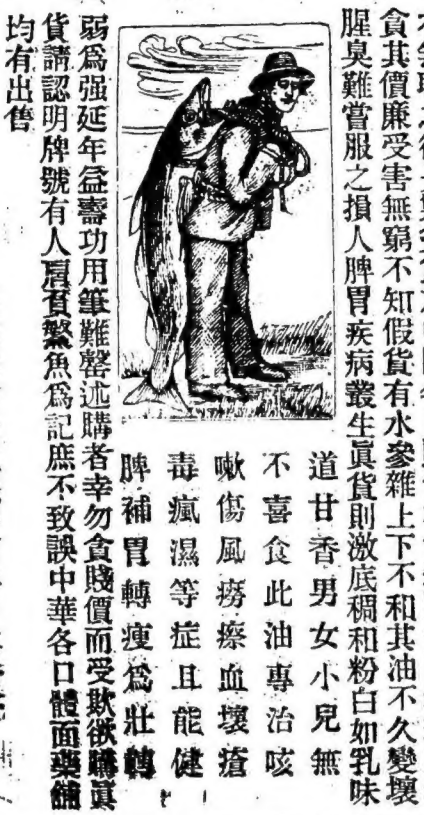 貪其價廉受害無窮不知假貨有水參雜上下不和其油不久變壞
腥臭難當服之損人脾胃疾病叢生眞貨則激底稠和粉白如乳味
道甘香男女小兒無
不喜食此油專治咳
嗽傷風癆瘵血壞瘡
毒瘋濕等症且能健
脾補胃轉瘦爲壯轉
弱爲强延年益壽功用筆難罄述購者幸勿貪賤價而受欺欲購眞
貨請認明牌號有人肩負鰵魚爲記庶不致誤中華各口體面藥舖
均有出售